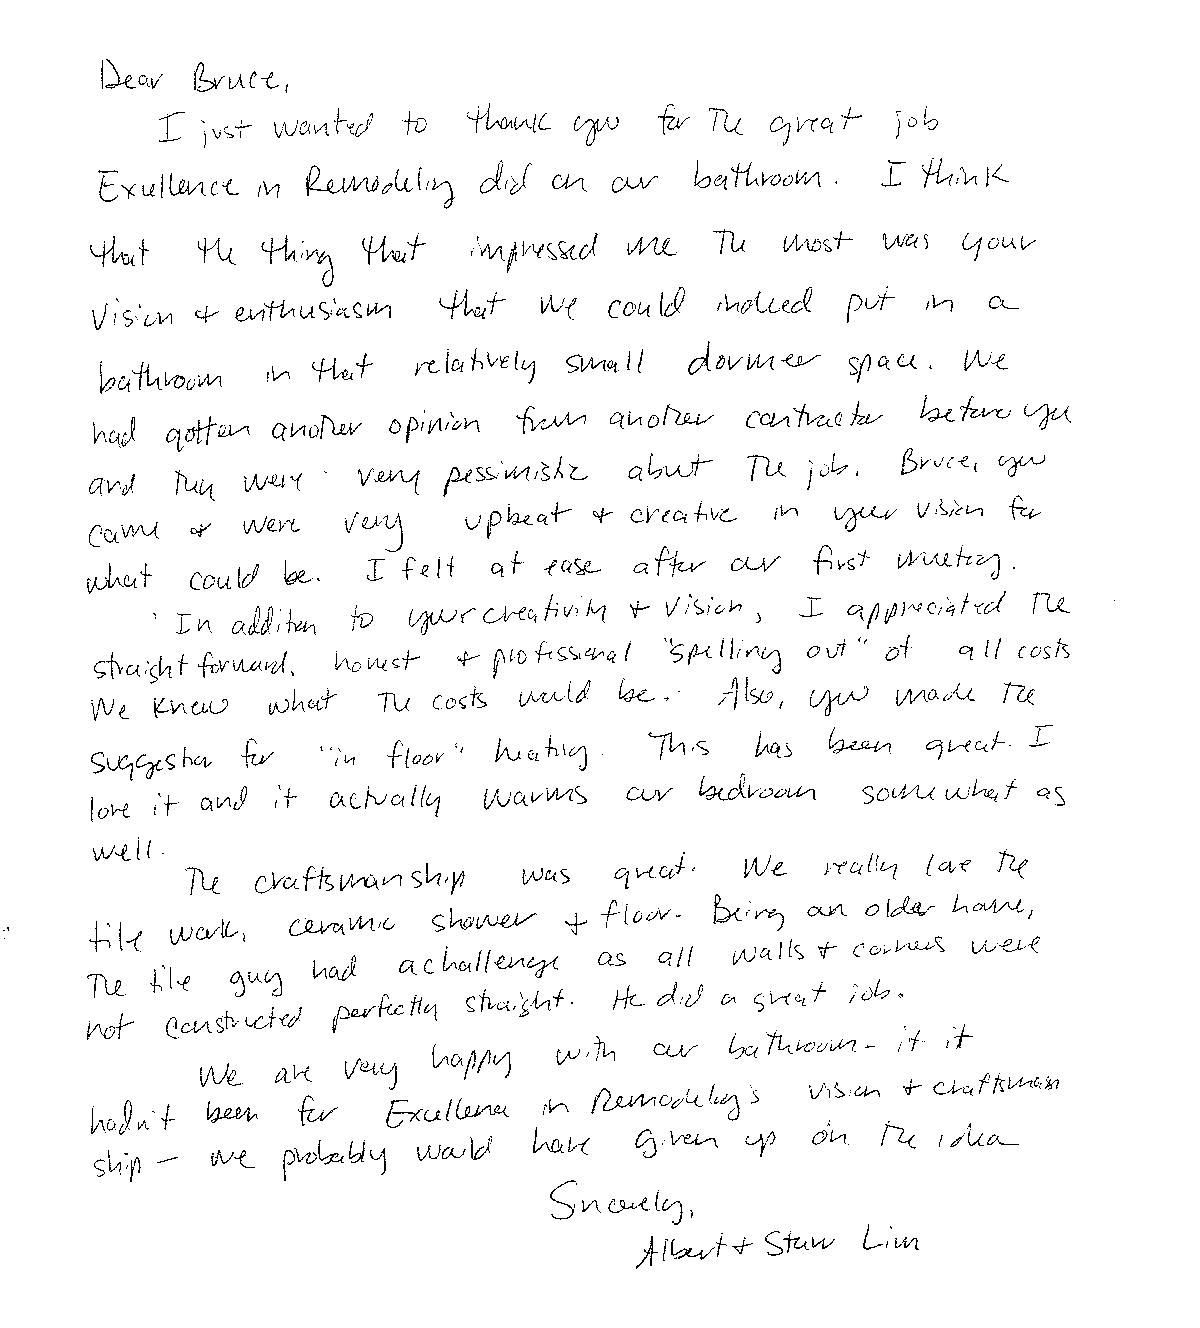 Dear Bruce,
I just wanted to thank you for the great job
Exellence in Remodeling did on our bathroom. I think
that the thing that impressed me the most was your
vision + enthusiasm that we could indeed put in a
bathroom in that relatively small dormer space. We
had gotten another opinion from another contractor before you
and they were very pessimistic about the job. Bruce, you
came & were very upbeat + creative in your vision for
what could be. I felt at ease after our first meeting.
In addition to your creativity + vision, I appreciated the
straight forward, honest + professional "spelling out" of all costs
We knew what the costs would be. Also, you made the
suggestion for "in floor" heating. This has been great. I
love it and it actually warms our bedroom somewhat as
well.
The craftsmanship was great. We really love the
tile work, ceramic shower + floor. Being an older home,
the tile guy had a challenge as all walls + corners were
not constructed perfectly straight. He did a great job.
We are very happy with our bathroom - if it
hadn't been for Excellence in Remodeling's vision + craftsman
ship - we probably would have given up on the idea
Sincerely,
Albert + Lim